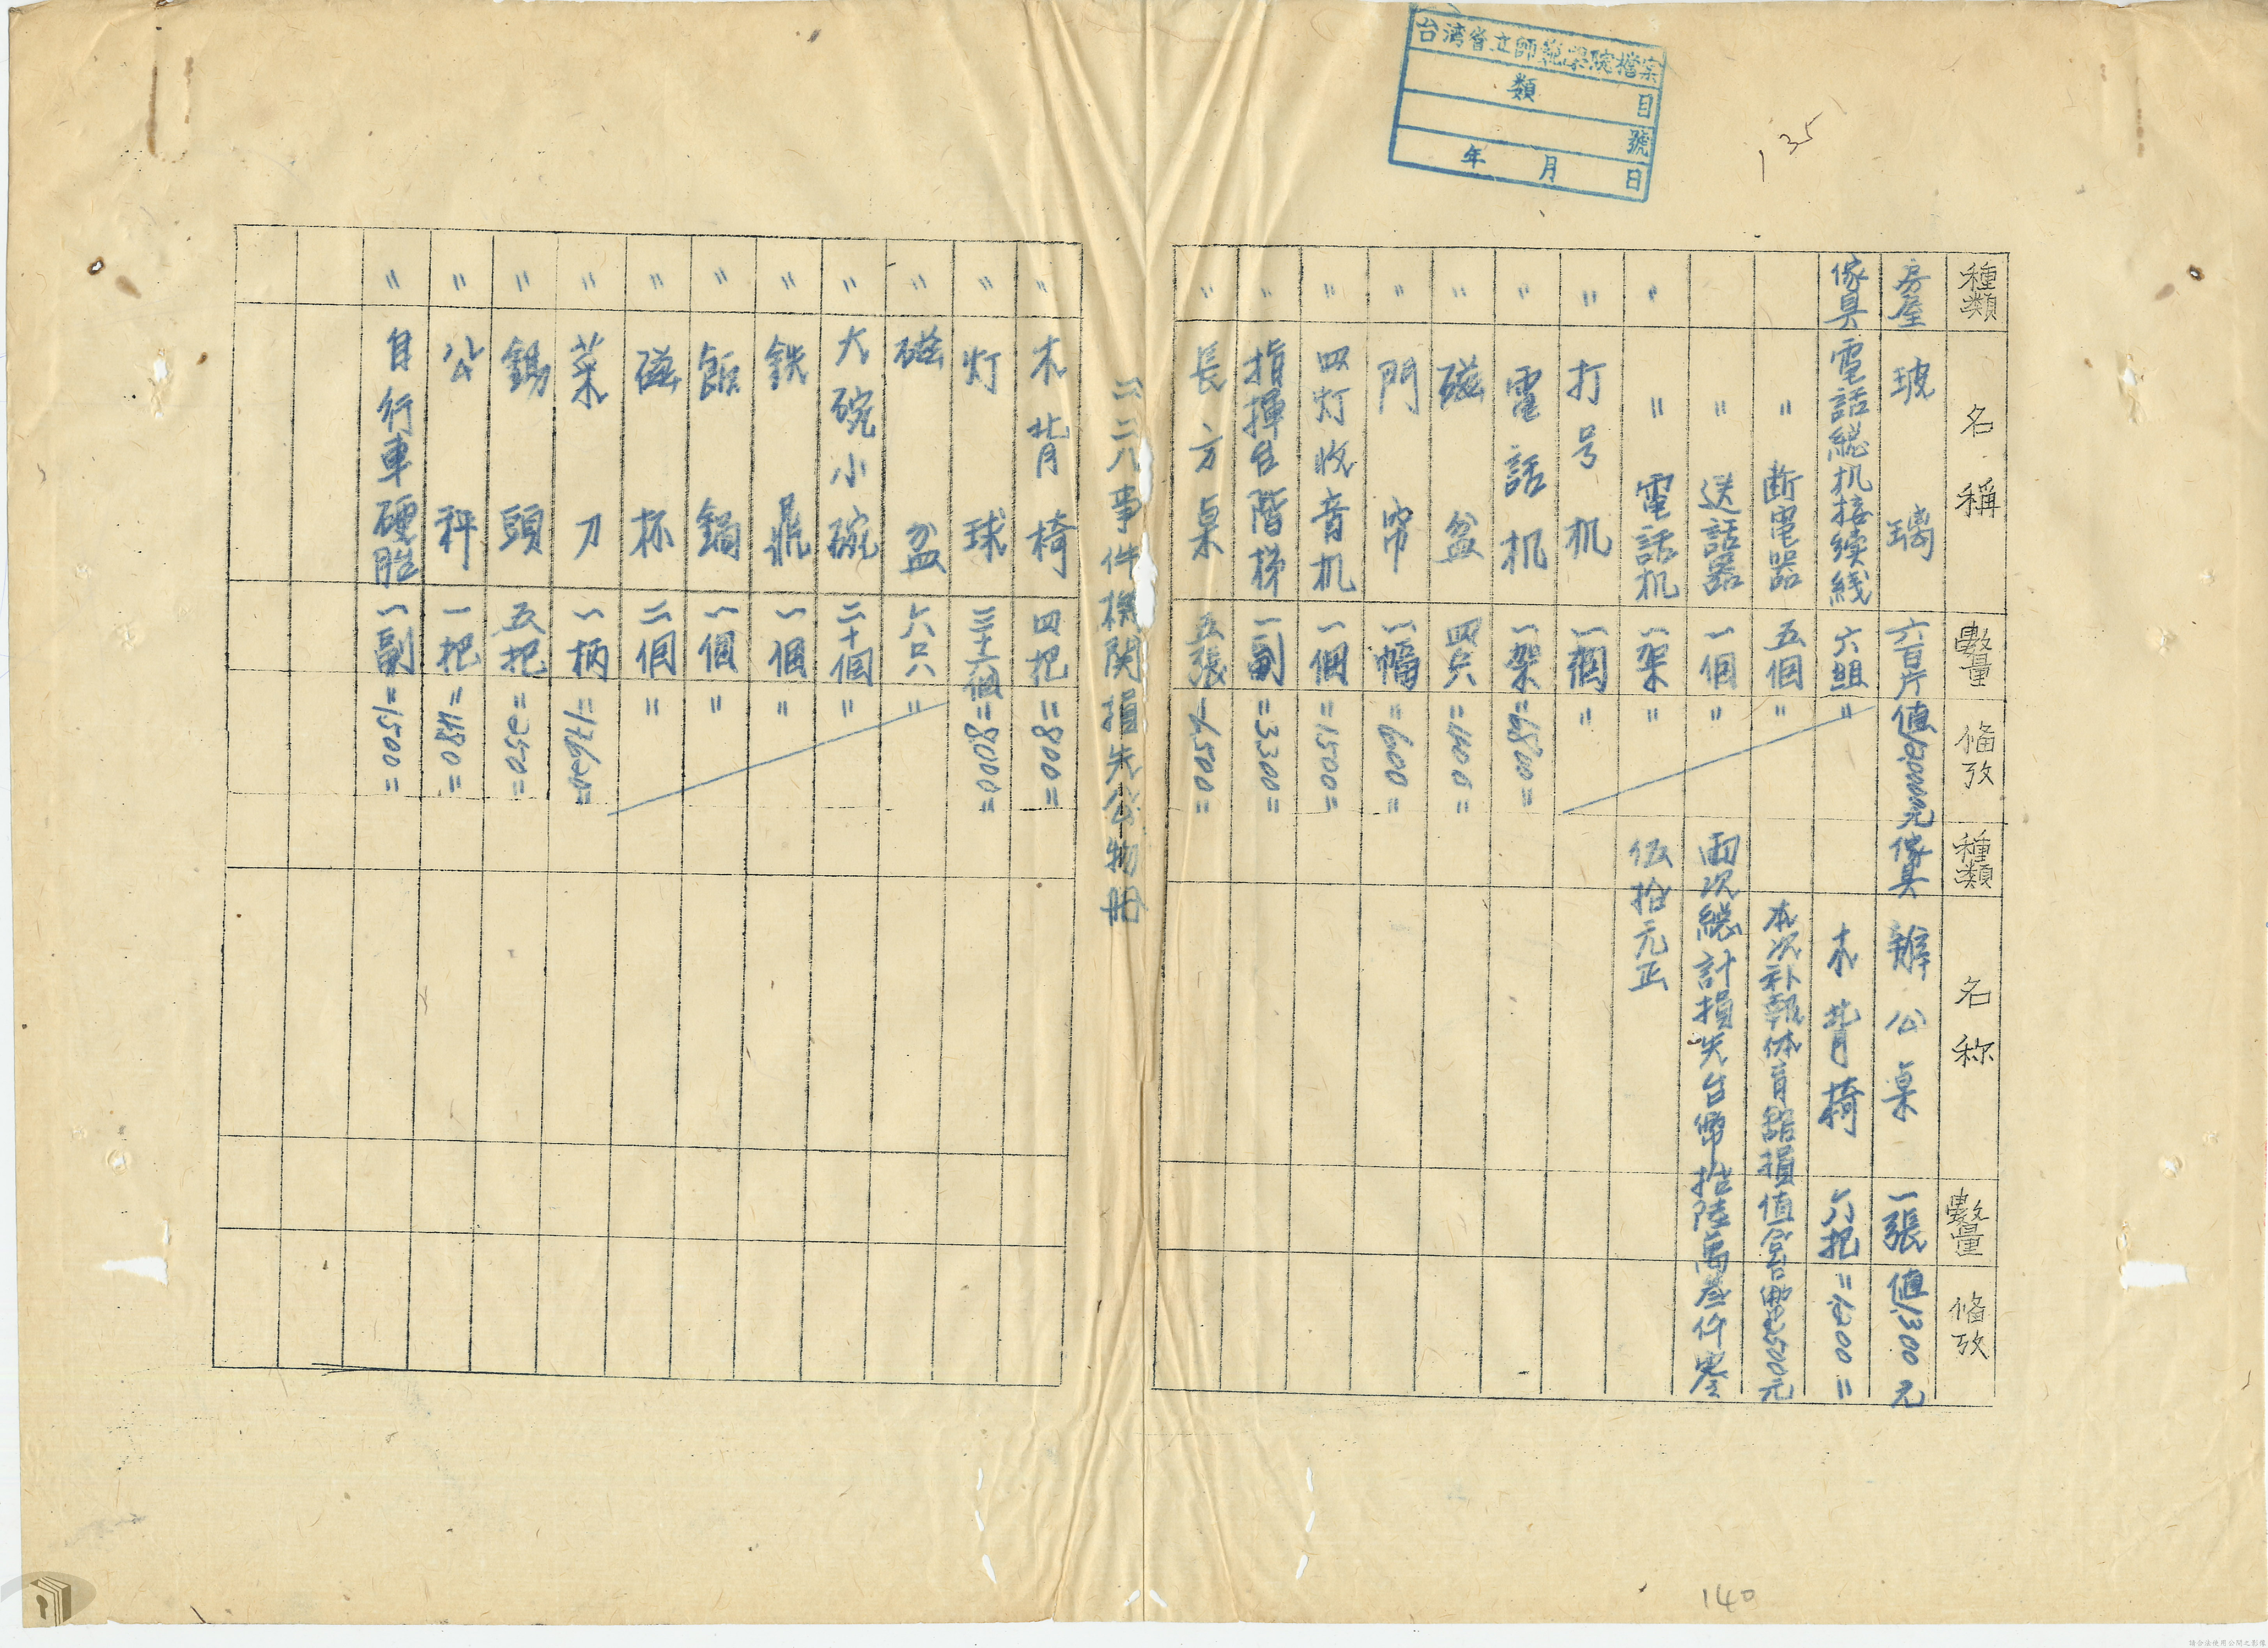 台灣省立師範學院檔案
類 目
號
年 月 日
135
種類 名稱 數量 俻攷 種類 名称 數量 俻攷
房屋 玻璃 六百片 傢具 辦公桌 一張 值1300元
傢具 電話総机接续綫 六組 〃 木背椅 六把 〃1200〃
〃 断電器 五個 〃 本次补報体育館損值合台幣
〃 送話器 一個 〃 両次総計損失台幣拾陸萬叁仟零
〃 〃 電話机 一架 〃 伍拾元正
〃 打号机 一個 〃
〃 電話机 一架 〃6800〃
〃 磁盆 四只 〃1400〃
〃 門帘 一幅 〃600〃
〃 四灯收音机 一個 〃1500〃
〃 指揮台階梯 一副 〃3300〃
〃 長方桌 五張 〃6500〃
二二八事件機関損失公物册
〃 木背椅 四把 〃800〃
〃 灯球 三十六個 〃8000〃
〃 磁盆 六只 〃
〃 大碗小碗 二十個 〃
〃 鉄鼎 一個 〃
〃 飯鍋 一個 〃
〃 磁杯 二個 〃
〃 菜刀 一柄
〃 鋤頭 五把 〃2500〃
〃 公秤 一把 〃480〃
〃 自行車硬胎 一副 〃1500〃
140